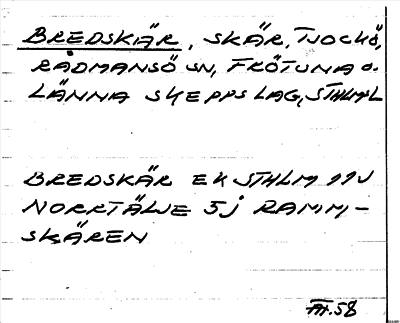 BREDSKÄR, SKÄR, TJOCKÖ,
RÅDMANSÖ SN, FRÖTUNA O.
LÄNNA SKEPPSLAG, STHLMS L
BREDSKÄR EK STHLM 11J
NORRTÄLJE 5j RAMM-
SKÄREN
58